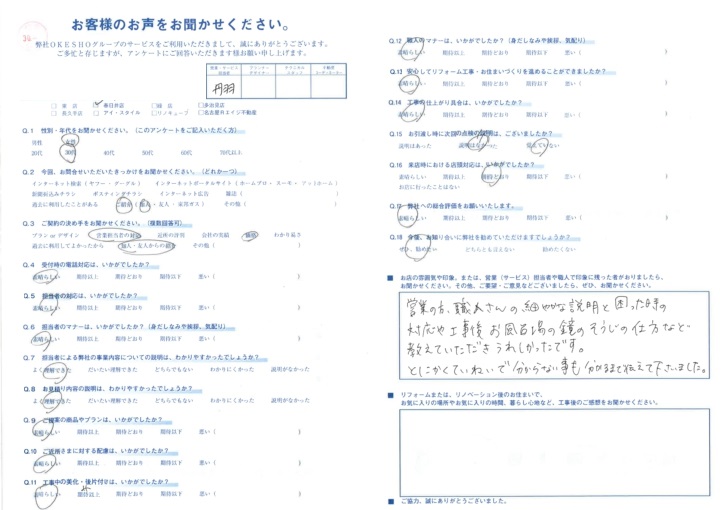 お客様のお声をお聞かせください。
弊社OKESHOグループのサービスをご利用いただきまして、誠にありがとうございます。
ご多忙と存じますが、アンケートにご回答いただきます様お願い申し上げます。
丹羽
東店 春日井店 緑店 多治見店
長久手店 アイ・スタイル リノキューブ 名古屋Rエイン不動産
Q.1 性別・年代をお聞かせください。（このアンケートをご記入いただく方）
男性 女性
20代 30代 40代 50代 60代 70代以上
Q.2 今回、お問合せいただいたきっかけをお聞かせください。（どれか一つ）
インターネット検索（ヤフー・グーグル） インターネットポータルサイト（ホームプロ・スーモ・アットホーム）
新聞折込みチラシ ポスティングチラシ インターネット広告 雑誌（ ）
過去に利用したことがある ご紹介（知人・友人・東邦ガス） その他（ ）
Q.3 ご契約の決め手をお聞かせください。（複数回答可）
プラン or デザイン 営業担当者の対応 近所の評判 会社の実績 価格 わかり易さ
過去に利用してよかったから 知人・友人からの紹介 その他（ ）
Q.4 受付時の電話対応は、いかがでしたか？
素晴らしい 期待以上 期待どおり 期待以下 悪い（ ）
Q.5 担当者の対応は、いかがでしたか？
素晴らしい 期待以上 期待どおり 期待以下 悪い（ ）
Q.6 担当者のマナーは、いかがでしたか？（身だしなみや挨拶、気配り）
素晴らしい 期待以上 期待どおり 期待以下 悪い（ ）
Q.7 担当者による弊社の事業内容についての説明は、わかりやすかったでしょうか？
よく理解できた だいたい理解できた どちらでもない わかりにくかった 説明がなかった
Q.8 お見積り内容の説明は、わかりやすかったでしょうか？
よく理解できた だいたい理解できた どちらでもない わかりにくかった 説明がなかった
Q.9 ご提案の商品やプランは、いかがでしたか？
素晴らしい 期待以上 期待どおり 期待以下 悪い（ ）
Q.10 ご近所さまに対する配慮は、いかがでしたか？
素晴らしい 期待以上 期待どおり 期待以下 悪い（ ）
Q.11 工事中の美化・後片付けは、いかがでしたか？
素晴らしい 期待以上 期待どおり 期待以下 悪い（ ）
Q.12 職人のマナーは、いかがでしたか？（身だしなみや挨拶、気配り）
素晴らしい 期待以上 期待どおり 期待以下 悪い（ ）
Q.13 安心してリフォーム工事・お住まいづくりを進めることができましたか？
素晴らしい 期待以上 期待どおり 期待以下 悪い（ ）
Q.14 工事の仕上がり具合は、いかがでしたか？
素晴らしい 期待以上 期待どおり 期待以下 悪い（ ）
Q.15 お引渡し時に次回の点検の説明は、ございましたか？
説明はあった 説明はなかった 覚えていない
Q.16 来店時における店頭対応は、いかがでしたか？
素晴らしい 期待以上 期待どおり 期待以下 悪い（ ）
お店に行ったことはない
Q.17 弊社への総合評価をお願いいたします。
素晴らしい 期待以上 期待どおり 期待以下 悪い（ ）
Q.18 今後、お知り合いに弊社を勧めていただけますでしょうか？
ぜひ、勧めたい どちらとも言えない 勧めたくない
■ お店の雰囲気や印象、または、営業（サービス）担当者や職人で印象に残った者がおりましたら、
お聞かせください。その他、ご要望・ご意見などございましたら、ぜひ、お聞かせください。
営業の方、職人さんの細やかな説明と困った時の
対応や工事後お風呂場の鏡のそうじの仕方など
教えていただきうれしかったです。
とにかくていねいで分からない事も分かるまで伝えて下さいました。
■ リフォームまたは、リノベーション後のお住まいで、
お気に入りの場所やお気に入りの時間、暮らし心地など、工事後のご感想をお聞かせください。
■ ご協力、誠にありがとうございました。